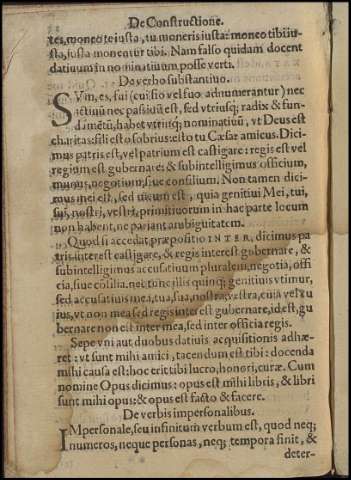 De Constructione.
tes, moneo te iusta, tu moneris iusta: moneo tibi iu-
sta, iusta monentur tibi. Nam falso quidam docent
datiuum in nominatiuum posse verti.
De verbo substantiuo.
SVm, es, fui (cui fio vel fuo adnumerantur) nec
actiuũ nec passiuũ est, sed vtriusq; radix & fun-
damẽtũ, habet vtrinq; nominatiuũ, vt Deus est
charitas: fili esto sobrius: esto tu Cæsar amicus. Dici-
mus patris est, vel patrium est castigare: regis est vel
regium est gubernare: & subintelligimus officium,
munus, negotium, siue consilium. Non tamen dici-
mus mei est, sed meum est, quia genitiui Mei, tui,
sui, nostri, vestri, primitiuorum in hac parte locum
non habent, ne pariant ambiguitatem.
Quod si accedat, præpositio INTER, dicimus pa-
tris interest castigare, & regis interest gubernare, &
subintelligimus accusatiuum pluralem, negotia, offi-
cia, siue cõsilia. nec tunc illis quinq; genitiuis vtimur,
sed accusatiuis mea, tua, sua, nostra, vestra, cuia vel cu
ius, vt non mea sed regis interest gubernare, id est, gu
bernare non est inter mea, sed inter officia regis.
Sepe vni aut duobus datiuis acquisitionis adhæ-
ret: vt sunt mihi amici, tacendum est tibi: docenda
mihi causa est: hoc erit tibi lucro, honori, curæ. Cum
nomine Opus dicimus: opus est mihi libris, & libri
sunt mihi opus: & opus est facto & facere.
De verbis impersonalibus.
IMpersonale, seu infinitum verbum est, quod neq;
numeros, neque personas, neq; tempora finit, &
deter-